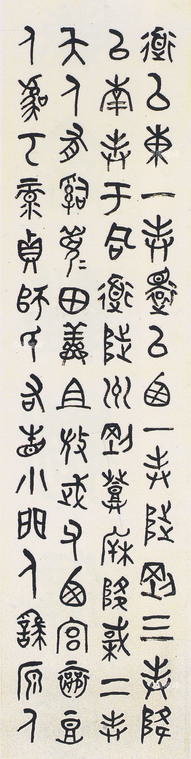 道以東一封還以西一封陟剛三封降
以南封于同道陟州剛登厈降棫二封
夨人有司眉田鮮且微武父西宮襄豆
人虞丂彔貞師氏右眚小門人繇原人